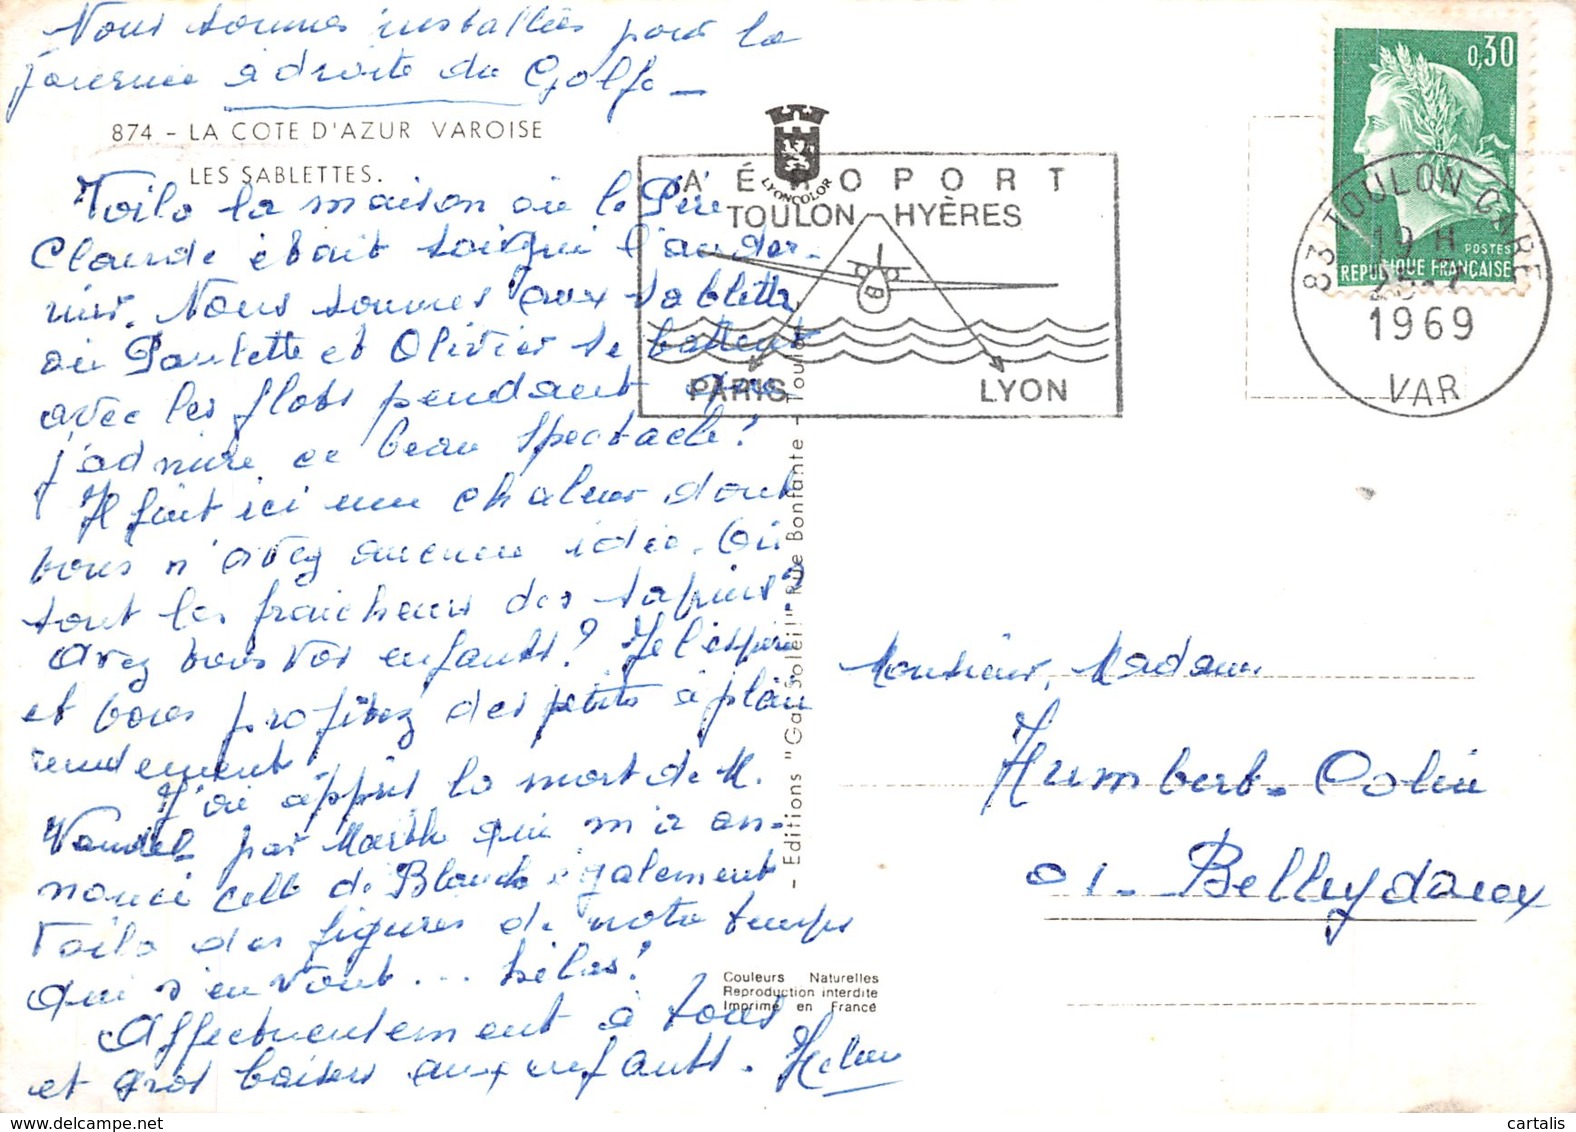 Nous sommes installées pour la
journée à droite du Golfe_
874. - LA COTE D'AZUR VAROISE
LES SABLETTES.
Voilà la maison où le Père
Claude était soigné l'an der-
nier. Nous sommes aux Sablettes
où Paulette et Olivier se battent
avec les flots pendant que
j'admire ce beau spectacle!
Il fait ici une chaleur dont
vous n'avez aucune idée. Où
sont les fraîcheurs des sapins?
Avez vous vos enfants? Je l'espère
et vous profitez des petits à plein
rendement
J'ai appris la mort de M.
par Marthe qui m'a an-
noncé celle de Blanche également
Voilà des figures de notre temps
qui s'en vont... hélas!
Affectueusement à tous
et gros baisers aux enfants.
LYONCOLOR
AÉROPORT
TOULON HYÈRES
PARIS LYON
0,30
POSTES
REPUBLIQUE FRANÇAISE
83 TOULON CARE
19 H
1969
VAR
- Editions "Gai Soleil" Rue Bonfante - Toulon
Monsieur, Madame
Humbert-Colin
01- Belleydoux
Couleurs Naturelles
Reproduction interdite
Imprimé en France
cartalis